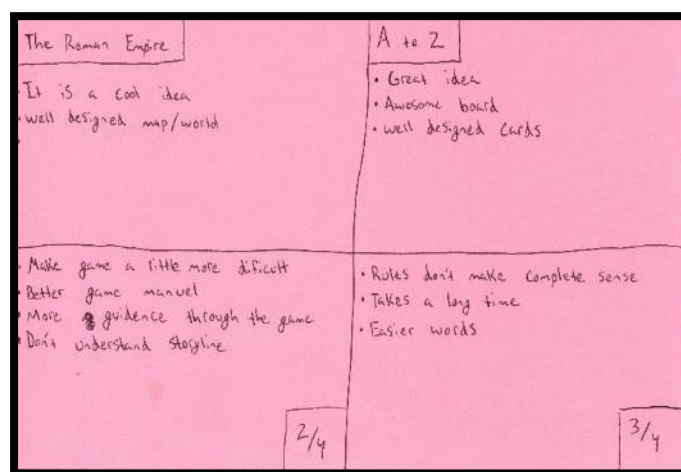 The Roman Empire
• It is a cool idea
• well designed map/world
•
• Make game a little more dificult
• Better game manuel
• More guidence through the game
• Don't understand storyline
2/4
A to Z
• Great idea
• Awesome board
• well designed cards
• Rules don't make complete sense
• Takes a long time
• Easier words
3/4